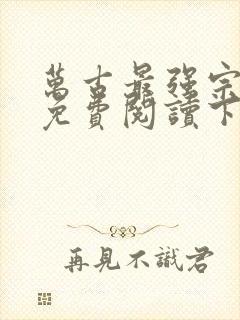 萬古最强宗
免費閱讀下
再見不識君